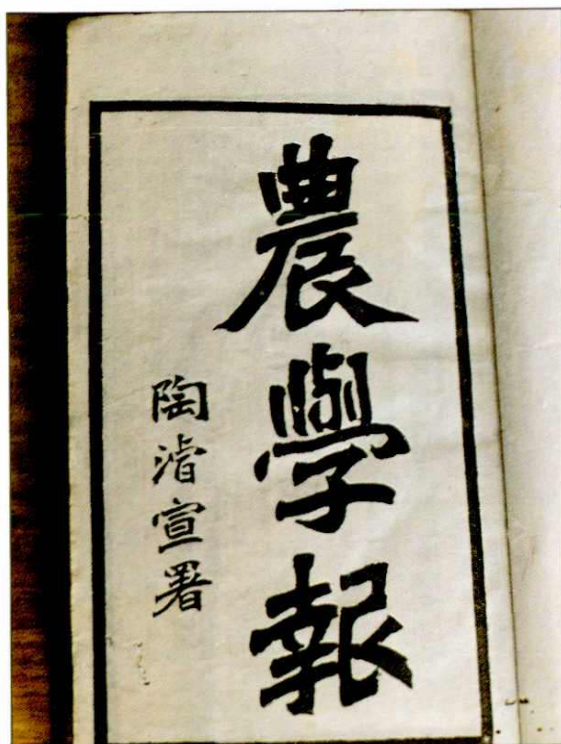 農學報
陶濬宣署